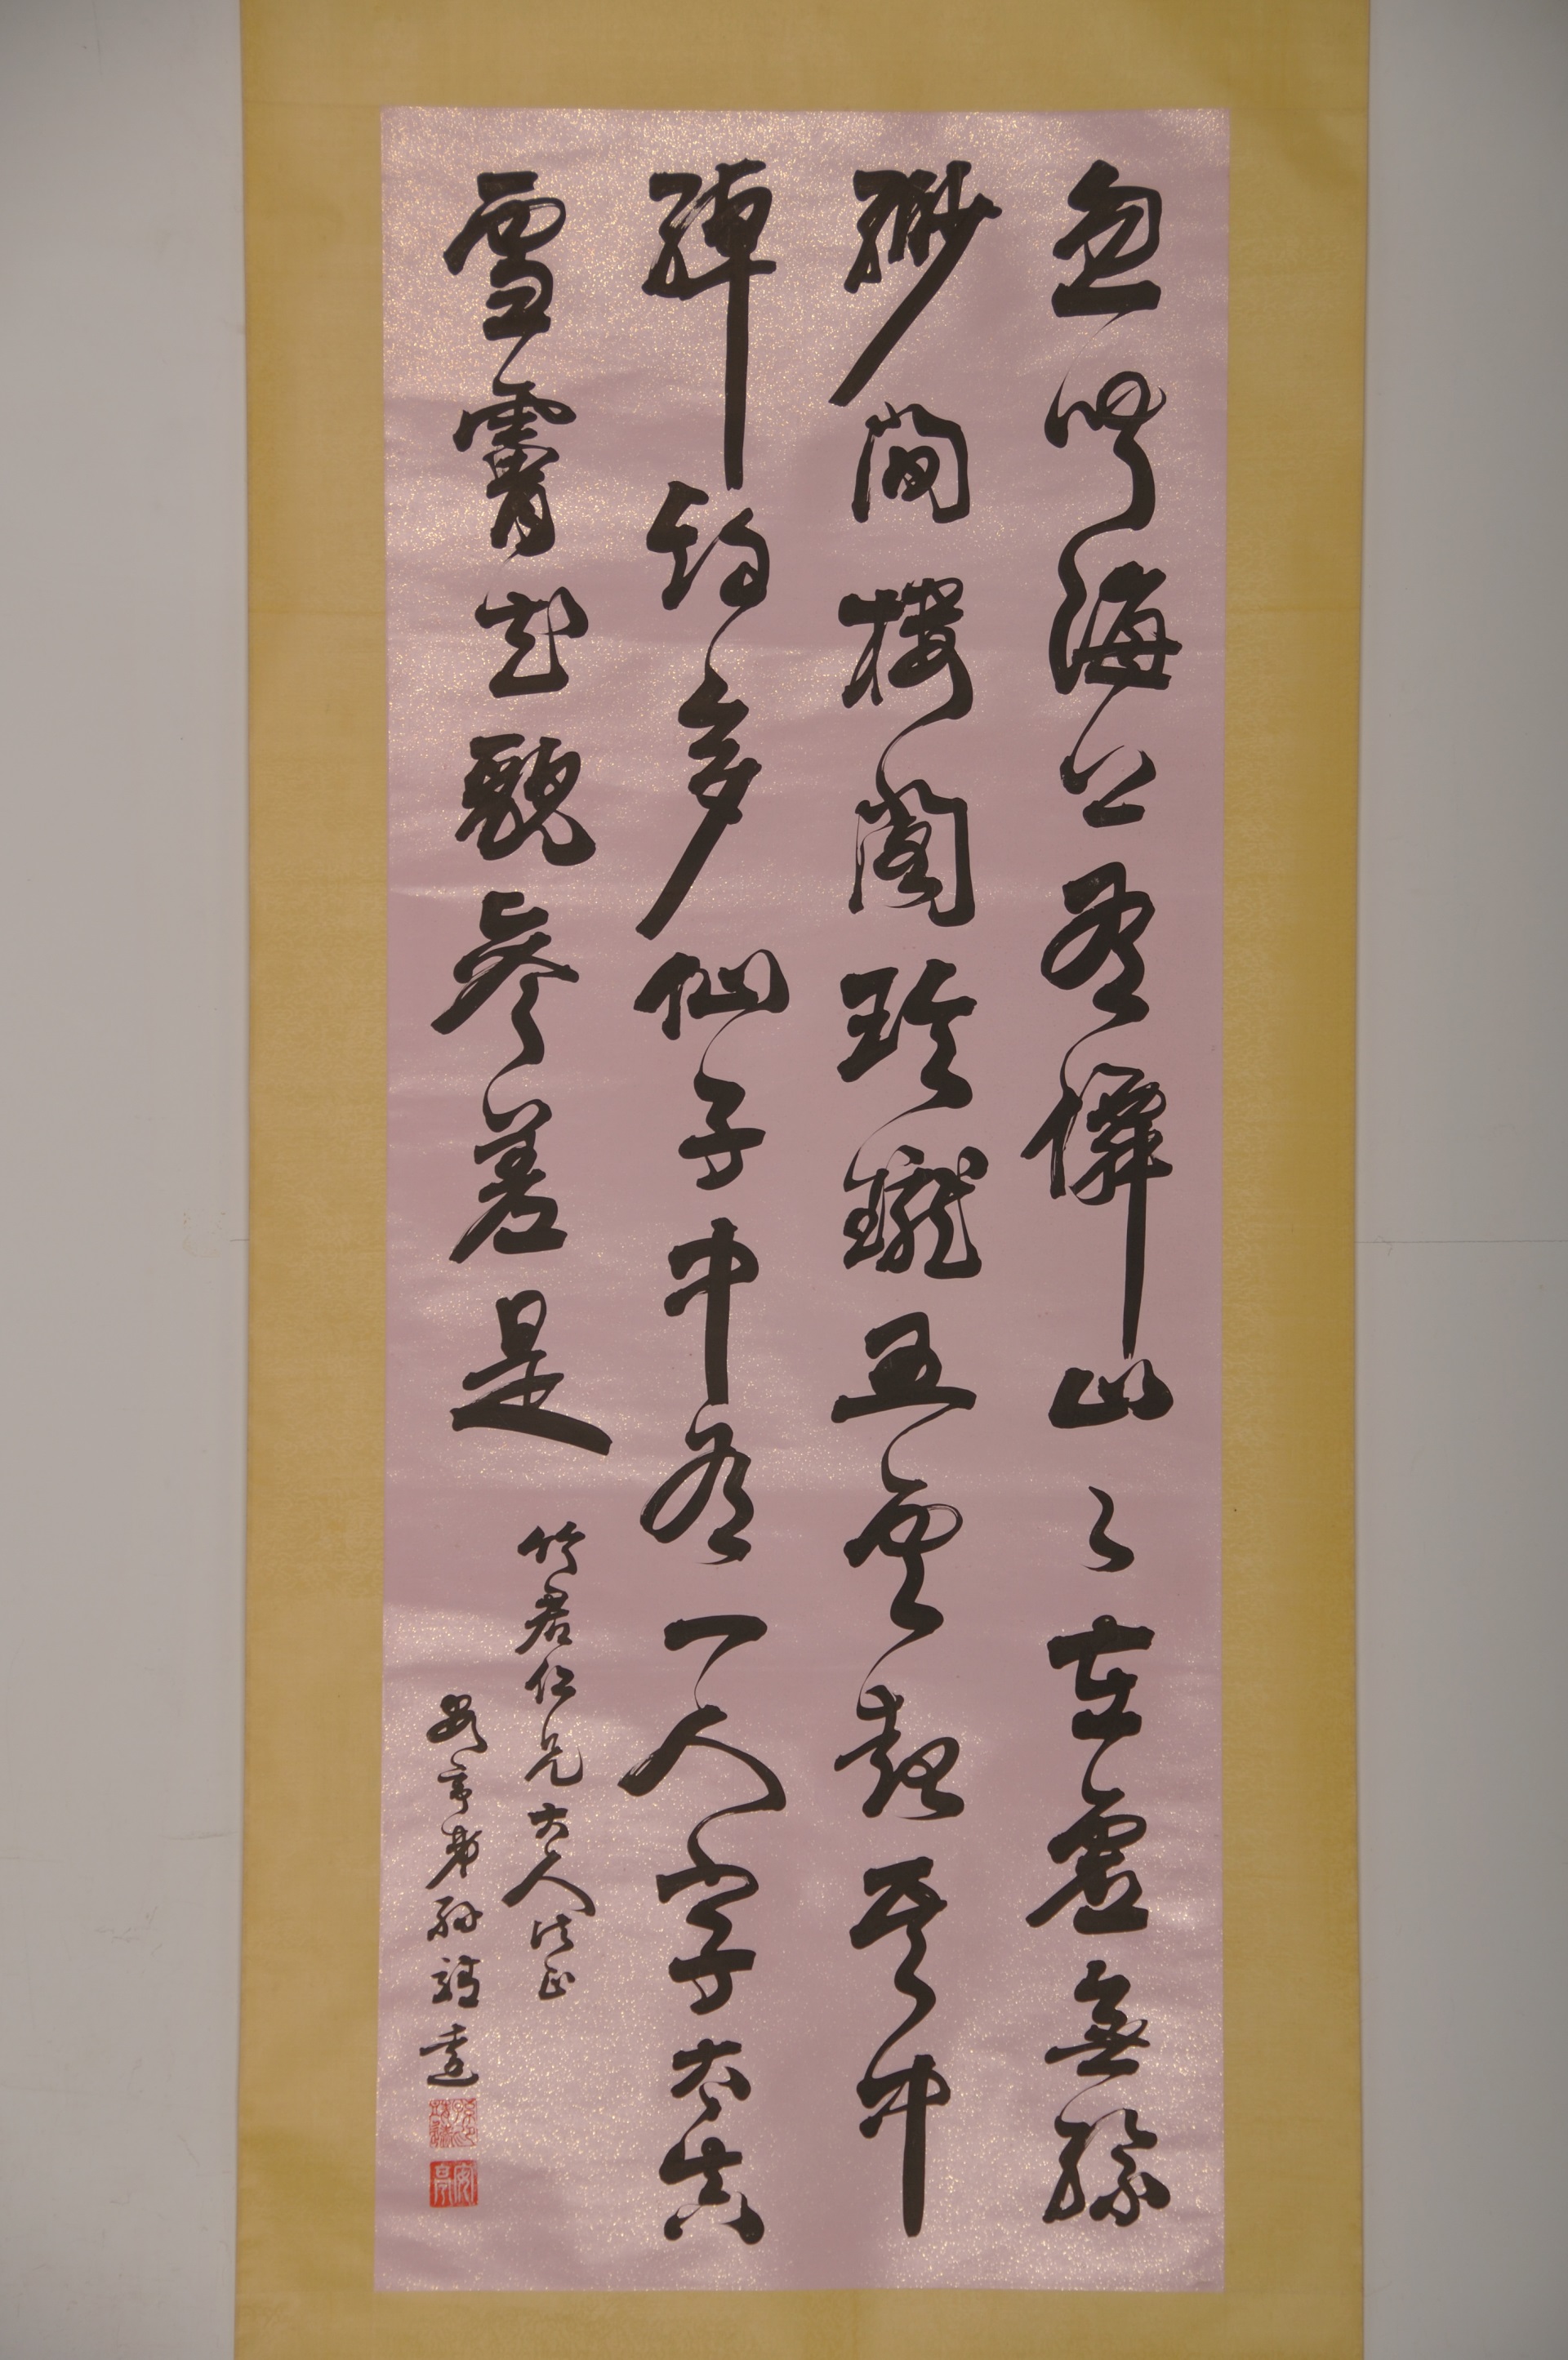 忽聞海上有僊山々在虛無縹
緲間樓閣玲瓏五雲起其中
綽約多仙子中有一人字太真
雪膚花貌參差是
竹君仁兄大人法正
安亭弟孫
安亭